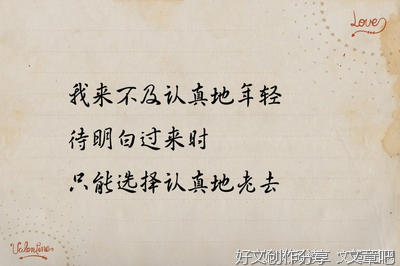 Love
我来不及认真地年轻
待明白过来时
只能选择认真地老去
Valentine
好文创作分享 文文章吧